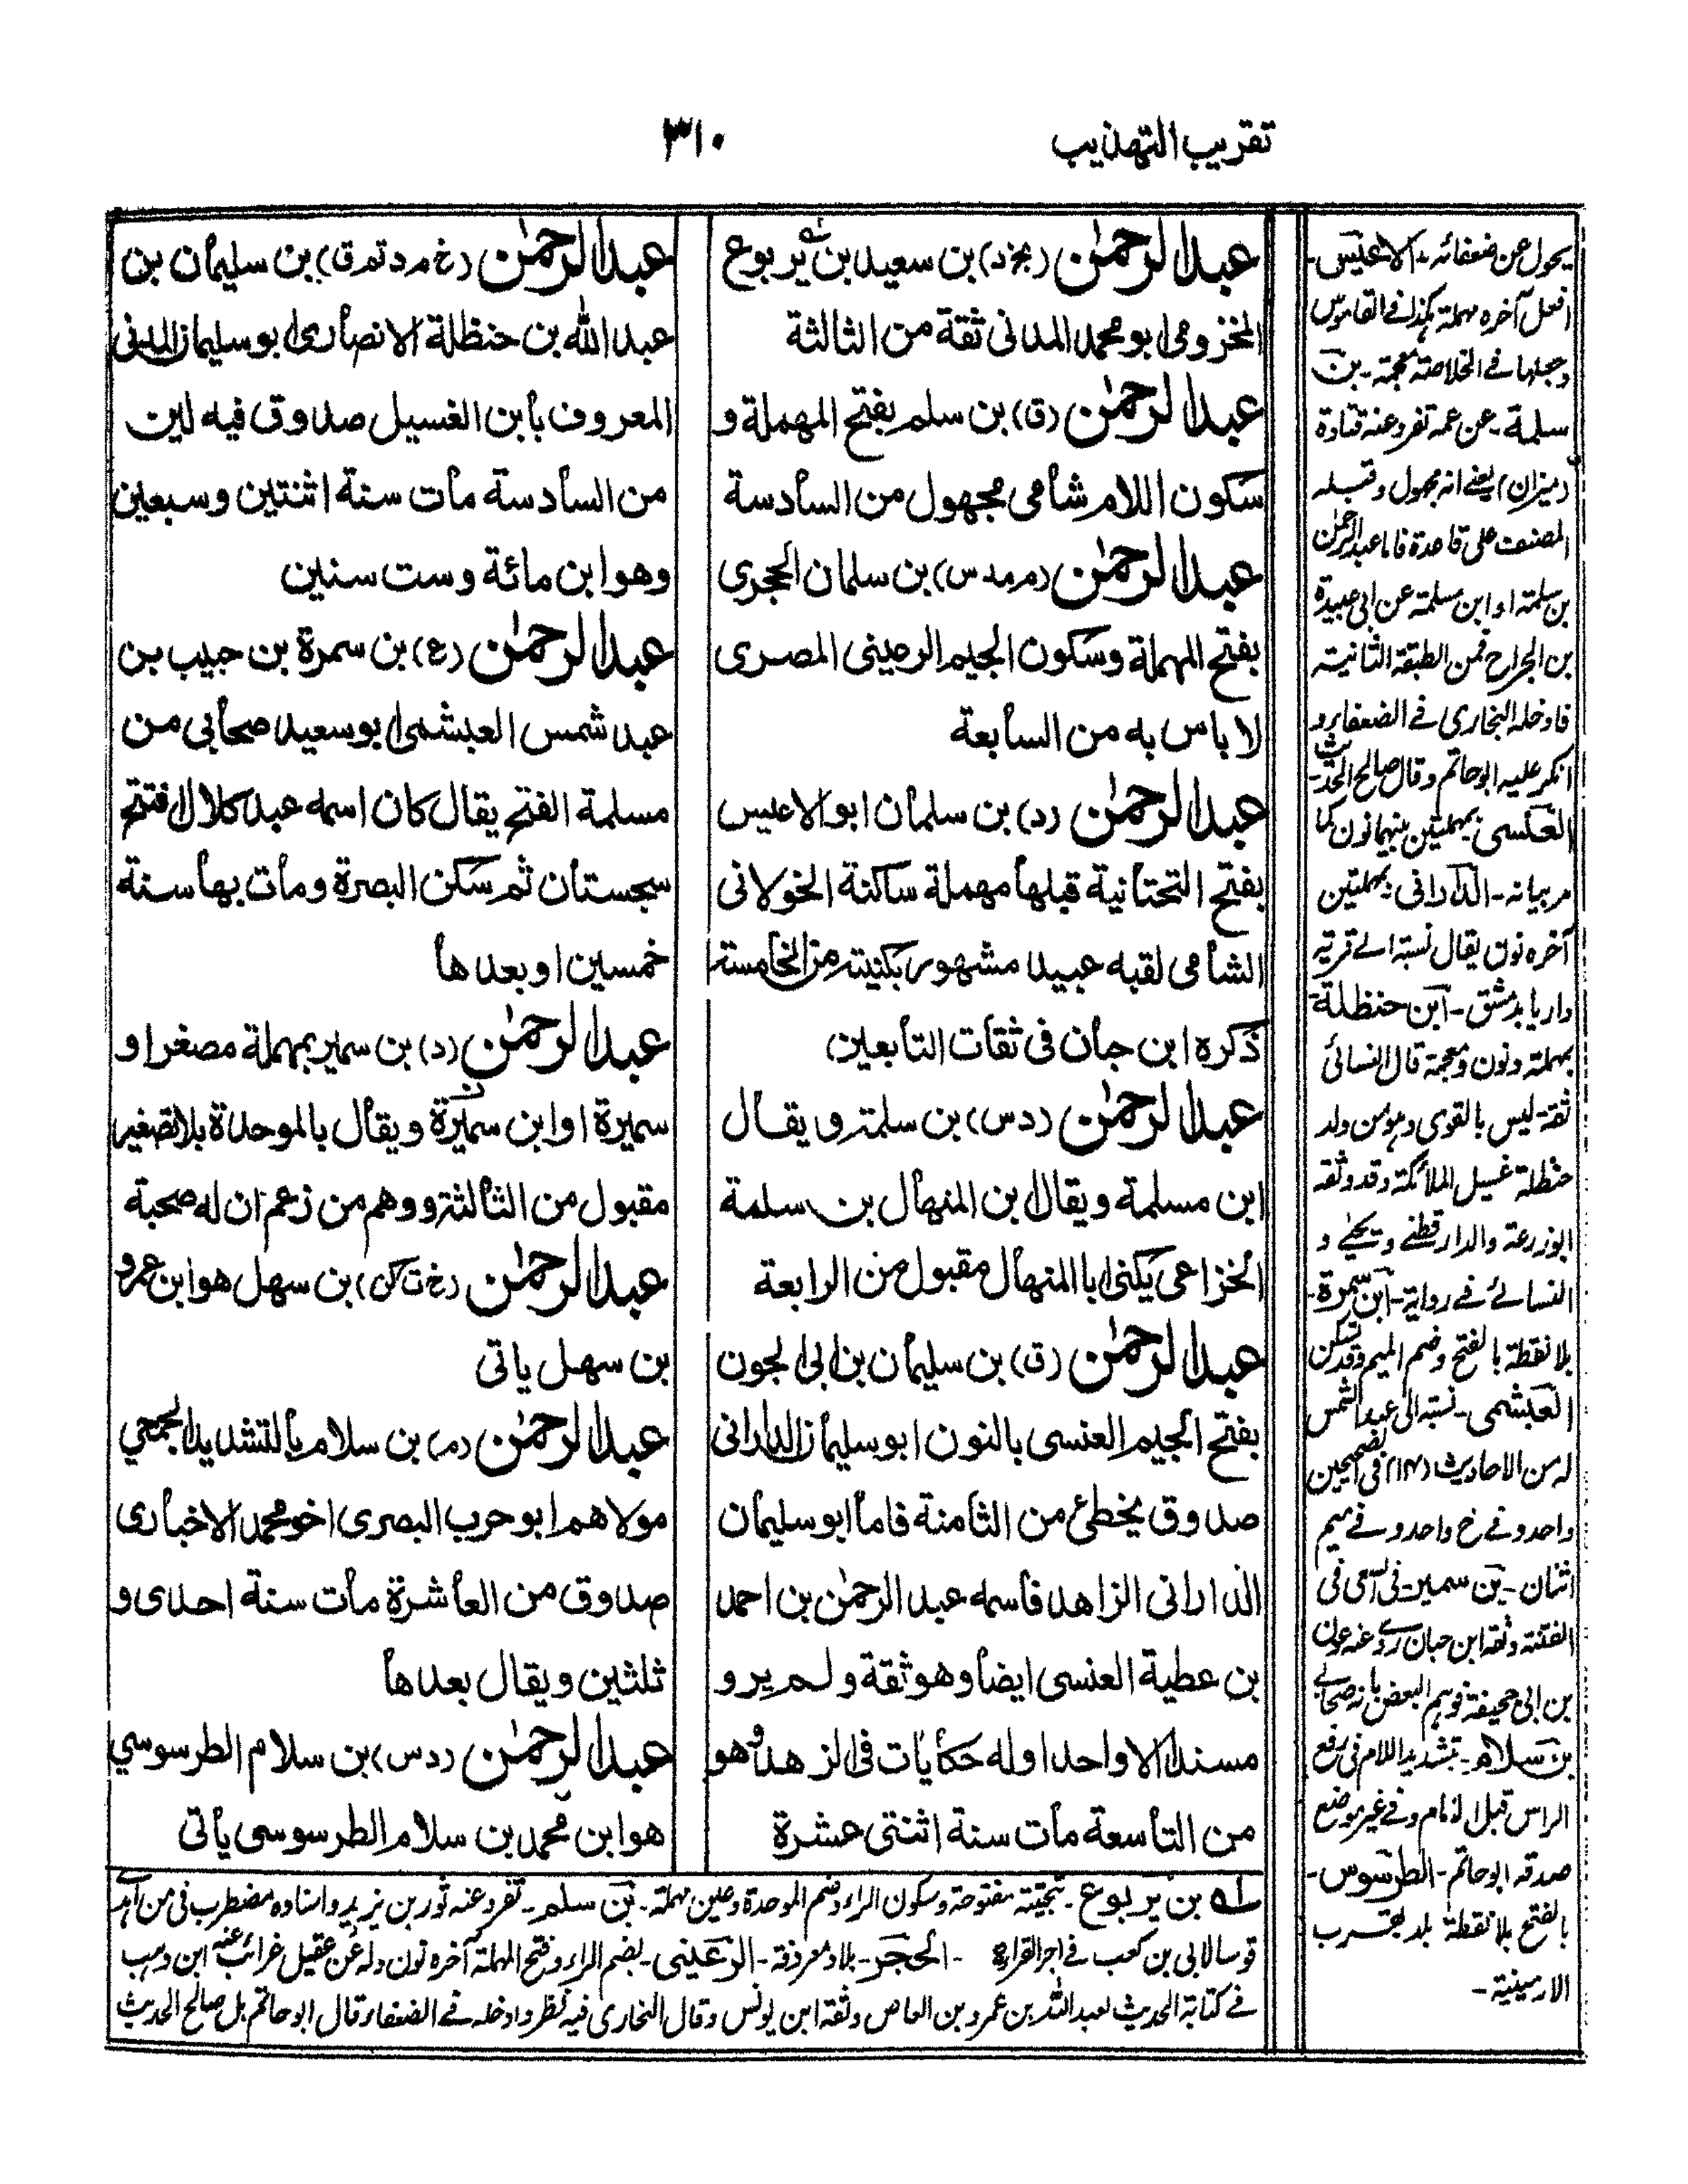 تقريب التهذيب
٣١٠
عبدالرحمٰن (بخ د) بن سعيد بن يربوع
المخزومى ابو محمد المدنى ثقة من الثالثة
عبدالرحمٰن (ق) بن سلم بفتح المهملة و
سكون اللام شامى مجهول من السادسة
عبدالرحمٰن (م مد س) بن سلمان الحجرى
بفتح المهملة وسكون الجيم الرعينى المصرى
لا باس به من السابعة
عبدالرحمٰن (د) بن سلمان ابو الاعيس
بفتح التحتانية قبلها مهملة ساكنة الخولانى
الشامى لقبه عبيد مشهور بكنيته من الخامسة
ذكره ابن حبان فى ثقات التابعين
عبدالرحمٰن (د س) بن سلمة ويقال
ابن مسلمة ويقال ابن المنهال بن سلمة
الخزاعى يكنى ابا المنهال مقبول من الرابعة
عبدالرحمٰن (ق) بن سليمان بن ابى الجون
بفتح الجيم العنسى بالنون ابو سليمان الدارانى
صدوق يخطئ من الثامنة فاما ابو سليمان
الدارانى الزاهد فاسمه عبد الرحمٰن بن احمد
بن عطية العنسى ايضا وهو ثقة ولم يرو
مسندا الا واحدا وله حكايات فى الزهد وهو
من التاسعة مات سنة اثنتى عشرة
عبدالرحمٰن (خ م د تم ق) بن سليمان بن
عبد الله بن حنظلة الانصارى ابو سليمان المدنى
المعروف بابن الغسيل صدوق فيه لين
من السادسة مات سنة اثنتين وسبعين
وهو ابن مائة وست سنين
عبدالرحمٰن (ع) بن سمرة بن حبيب بن
عبد شمس العبشمى ابو سعيد صحابى من
مسلمة الفتح يقال كان اسمه عبد كلال افتتح
سجستان ثم سكن البصرة ومات بها سنة
خمسين او بعدها
عبدالرحمٰن (د) بن سمير بمهملة مصغرا و
سميرة او ابن سميرة ويقال بالموحدة بلا تصغير
مقبول من الثالثة ووهم من زعم ان له صحبة
عبدالرحمٰن (خ ت كن) بن سهل هو ابن عمرو
بن سهل ياتى
عبدالرحمٰن (م) بن سلام بالتشديد الجمحي
مولاهم ابو حرب البصرى اخو محمد الاخبارى
صدوق من العاشرة مات سنة احدى و
ثلثين ويقال بعدها
عبدالرحمٰن (د س) بن سلام الطرسوسي
هو ابن محمد بن سلام الطرسوسى ياتى
يحول عن ضعفائه - الاعيس -
افعل آخره مهملة كذا فى القاموس
وجعلها فے الخلاصة معجمة - بن
سلمة - عن عمه تفرد عنه قتادة
(ميزان) يعنے انه مجهول وقبله
المصنف على قاعدة فاما عبد الرحمٰن
بن سلمة او ابن مسلمة عن ابى عبيدة
بن الجراح فمن الطبقة الثانية
فادخله البخارى فے الضعفاء و
انكر عليه ابو حاتم وقال صالح الحديث -
العنسى بمهملتين بينهما نون كما
مر بيانه - الدارانى بمهملتين
آخره نون يقال نسبة الے قرية
داريا بدمشق - ابن حنظلة
بمهملة ونون ومعجمة قال النسائى
ثقة ليس بالقوى وهو من ولد
حنظلة غسيل الملائكة وقد وثقه
ابو زرعة والدارقطنے ويحيے و
النسائے فے رواية - ابن سمرة -
بلا نقطة بالفتح وضم الميم وقد تسكن
العبشمى - نسبة الى عبد الشمس
له من الاحاديث (١٤) فى الصحيحين
واحد وفے خ واحد وفے ميم
اثنان - بن سمير - فى السعى فى
الفتنة وثقه ابن حبان روى عنه عون
بن ابى جحيفة فوهم البعض بانه صحابے
بن سلام - بتشديد اللام فى رفع
الراس قبل الامام وفے غير موضع
صدقه ابو حاتم - الطرسوس -
بالفتح بلا نقطة بلد بقرب
الارمينية -
لـه بن يربوع - بتحتية مفتوحة وسكون الراء وضم الموحدة وعين مهملة - بن سلم - تفرد عنه ثور بن يزيد واسناده مضطرب فى من اهدے
قوسا لابى بن كعب فے اجر القراءة - الحجر - بلاد معروفة - الرعينى - بضم الراء وفتح المهملة آخره نون وله عن عقيل غرائب عنه ابن وهب
فے كتابة الحديث لعبد الله بن عمرو بن العاص وثقه ابن يونس وقال البخارى فيه نظر وادخله فے الضعفاء وقال ابو حاتم بل صالح الحديث